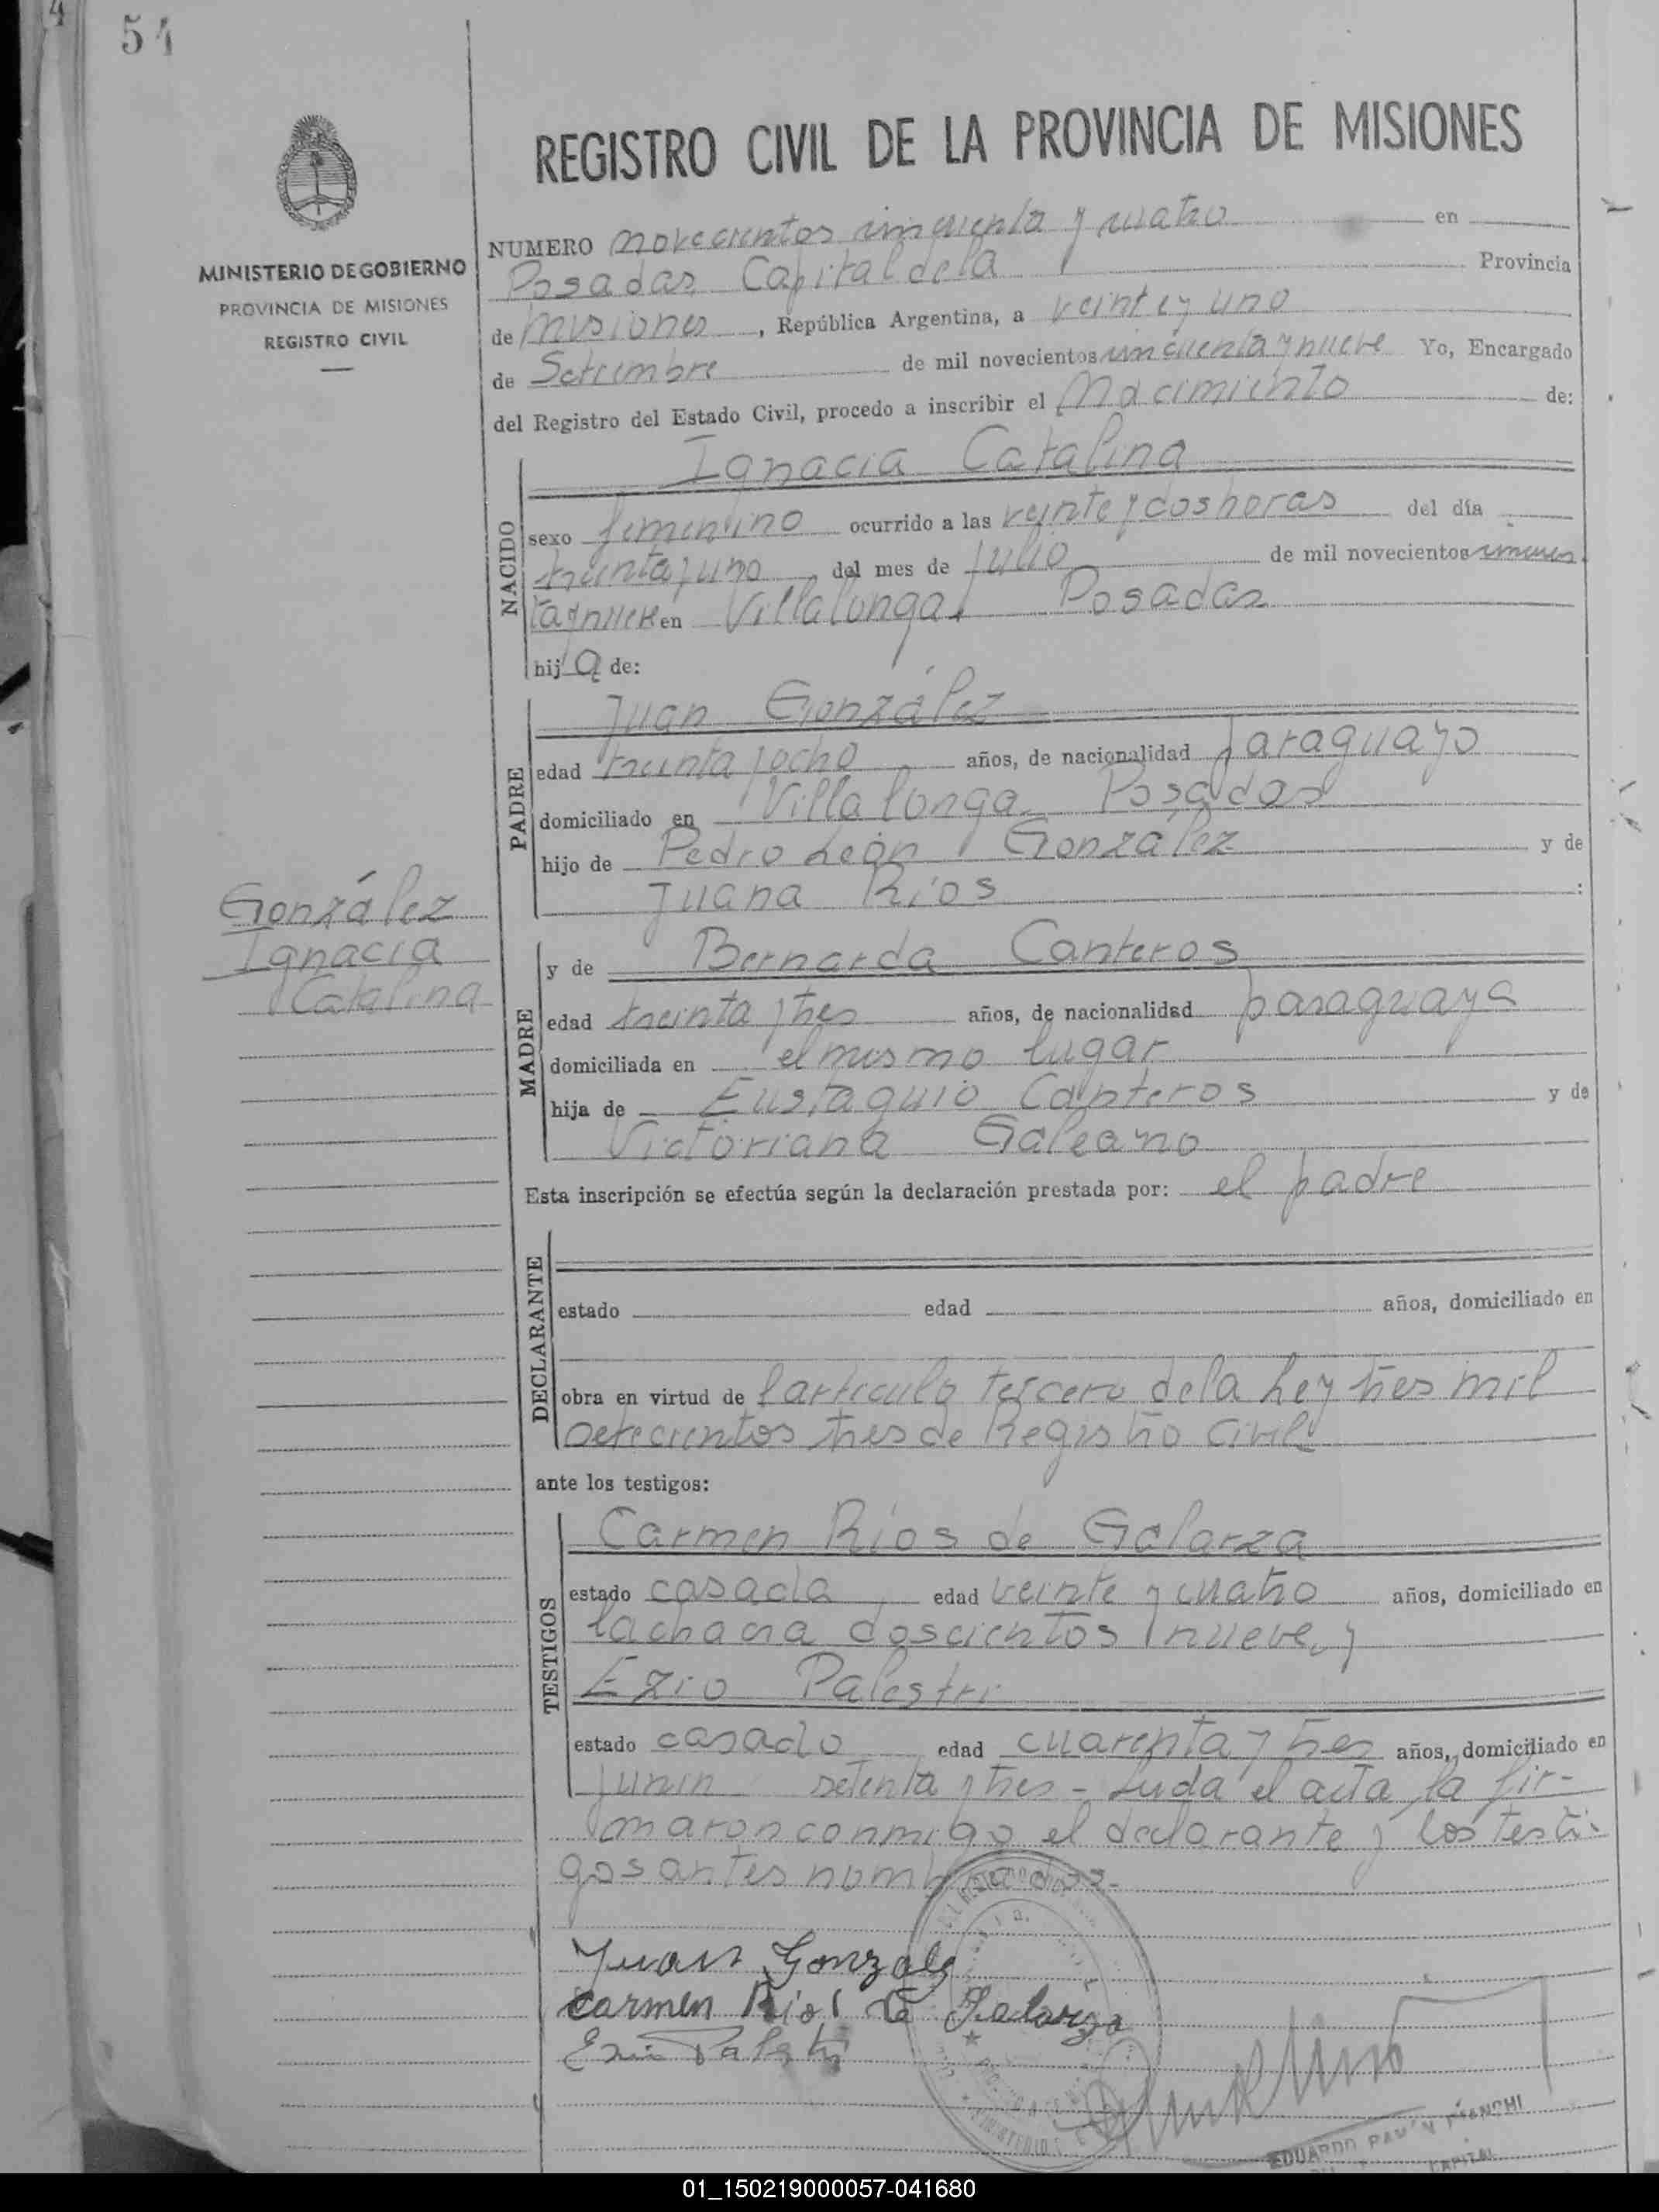 54
REGISTRO CIVIL DE LA PROVINCIA DE MISIONES
MINISTERIO DE GOBIERNO
PROVINCIA DE MISIONES
REGISTRO CIVIL
NUMERO novecientos cincuenta y cuatro en
Posadas Capital de la Provincia
de Misiones, República Argentina, a veinte y uno
de Setiembre de mil novecientos cincuenta y nueve Yo, Encargado
del Registro del Estado Civil, procedo a inscribir el Nacimiento de:
NACIDO
Ignacia Catalina
sexo femenino ocurrido a las veinte y dos horas del día
treinta y uno del mes de Julio de mil novecientos cincuen
ta y nueve en Villalonga, Posadas
hija de:
PADRE
Juan González
edad treinta y ocho años, de nacionalidad paraguayo
domiciliado en Villalonga, Posadas
hijo de Pedro León González y de
Juana Ríos :
González
Ignacia
Catalina
MADRE
y de Bernarda Canteros
edad treinta y tres años, de nacionalidad paraguaya
domiciliada en el mismo lugar
hija de Eustaquio Canteros y de
Victoriana Galeano
Esta inscripción se efectúa según la declaración prestada por: el padre
DECLARANTE
estado edad años, domiciliado en
obra en virtud de l articulo tercero de la Ley tres mil
setecientos tres de Registro Civil
ante los testigos:
TESTIGOS
Carmen Ríos de Galarza
estado casada edad veinte y cuatro años, domiciliado en
la chacra doscientos nueve, y
Ezio Palestri
estado casado edad cuarenta y tres años, domiciliado en
Junin setenta y tres - Leida el acta, la fir-
maron conmigo el declarante y los testi-
gos antes nombrados.
Juan Gonzale
Carmen Rios de Galarza
Ezio Palestri
EDUARDO RAMÓN BIANCHI
CAPITAL
01_150219000057-041680